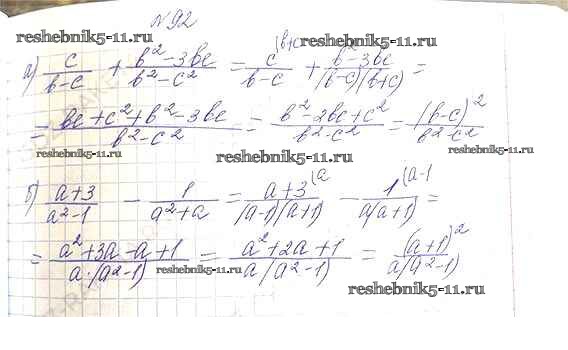 №92
reshebnik5-11.ru reshebnik5-11.ru
а) c/(b-c) + (b²-3bc)/(b²-c²) = c/(b-c) (b+c + (b²-3bc)/((b-c)(b+c)) =
= (bc+c²+b²-3bc)/(b²-c²) = (b²-2bc+c²)/(b²-c²) = (b-c)²/(b²-c²)
reshebnik5-11.ru reshebnik5-11.ru reshebnik5-11.ru
б) (a+3)/(a²-1) - 1/(a²+a) = (a+3)/((a-1)(a+1)) (a - 1/(a(a+1)) (a-1 =
= (a²+3a-a+1)/(a·(a²-1)) = (a²+2a+1)/(a(a²-1)) = (a+1)²/(a(a²-1))
reshebnik5-11.ru
reshebnik5-11.ru